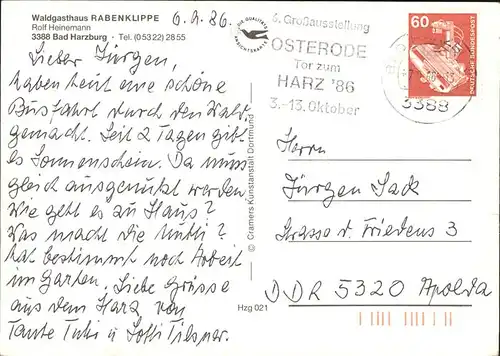 Waldgasthaus RABENKLIPPE
Rolf Heinemann
3388 Bad Harzburg - Tel. (05322) 2855
6.9.86.
DIE QUALITÄTS
ANSICHTSKARTE
6. Großausstellung
OSTERODE
Tor zum
HARZ '86
3.-13. Oktober
3388
60
DEUTSCHE BUNDESPOST
Lieber Jürgen,
haben heut eine schöne
Busfahrt durch den Wald
gemacht. Seit 2 Tagen gibt
es Sonnenschein. Da muss
gleich ausgenützt werden.
Wie geht es zu Haus?
Was macht die Mutti?
hat bestimmt noch Arbeit
im Garten. Liebe Grüsse
aus dem Harz von
Tante u
© Cramers Kunstanstalt Dortmund
Hzg 021
Herrn
Jürgen Jack
Strasse d. Friedens 3
DDR 5320 Apolda